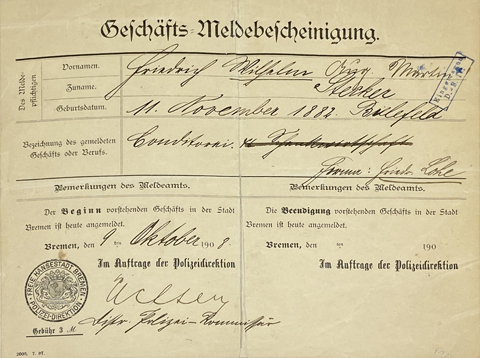 Geschäfts-Meldebescheinigung.
Des Melde-
pflichtigen
Vornamen. Friedrich Wilhelm Aug Martin
Zuname. Stecker
Geburtsdatum. 11. November 1882. Bielefeld
Bezeichnung des gemeldeten
Geschäfts oder Berufs.
Conditorei. Schankwirtschaft
Firma: Friedr.
Bemerkungen des Meldeamts. Bemerkungen des Meldeamts.
Der Beginn vorstehenden Geschäfts in der Stadt
Bremen ist heute angemeldet.
Bremen, den 9 ten Oktober 1908
Im Auftrage der Polizeidirektion
Distr. Polizei-Kommissär
FREIE HANSESTADT BREMEN
POLIZEI-DIREKTION
Gebühr 3 M.
Die Beendigung vorstehenden Geschäfts in der Stadt
Bremen ist heute angemeldet.
Bremen, den ten 190
Im Auftrage der Polizeidirektion